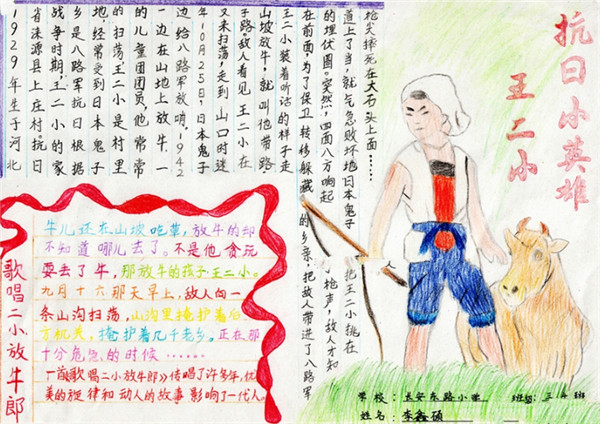 抗日小英雄
王二小
1929年生于河北
省涞源县上庄村。抗日
战争时期,王二小的家
乡是八路军抗日根据
地,经常受到日本鬼子
的扫荡,王二小是村里
的儿童团团员,他常常
一边在山地上放牛,一
边给八路军放哨。1942
年10月25日,日本鬼子
又来扫荡,走到山口时迷
了路。敌人看见王二小在
山坡放牛,就叫他带路。
王二小装着听话的样子走
在前面,为了保卫转移躲藏的乡亲,把敌人带进了八路军
的埋伏圈。突然,四面八方响起了枪声,敌人才知
道上了当,就气急败坏地日本鬼子把王二小挑在
枪尖摔死在大石头上面……
歌唱二小放牛郎
牛儿还在山坡吃草,放牛的却
不知道哪儿去了。不是他贪玩
耍丢了牛,那放牛的孩子王二小。
九月十六那天早上,敌人向一
条山沟扫荡,山沟里掩护着后
方机关,掩护着几千老乡。正在那
十分危急的时候……
一首《歌唱二小放牛郎》传唱了许多年,优
美的旋律和动人的故事影响了一代人。
学校:长安东路小学 班级:三年 班
姓名:李鑫硕